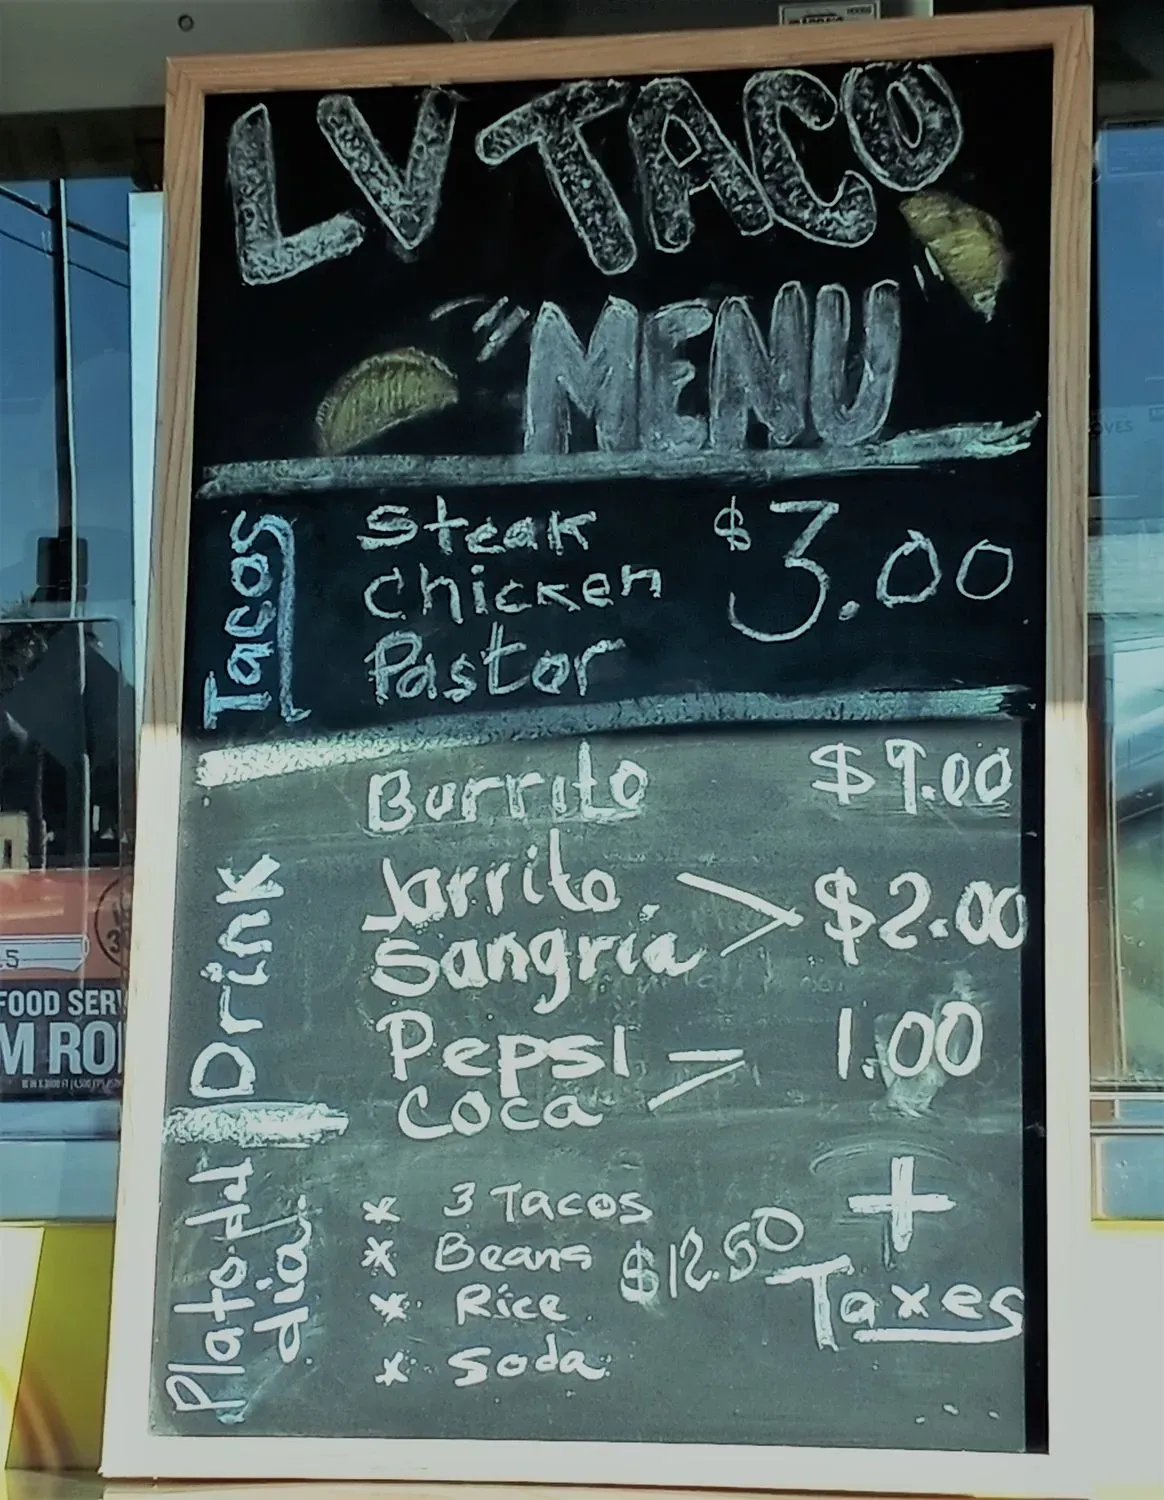 LV TACO
MENU
Tacos
Steak
Chicken
Pastor
$3.00
Burrito $9.00
Drink
Jarrito
Sangria > $2.00
Pepsi
Coca > 1.00
Plato del
dia
* 3 Tacos
* Beans
* Rice
* Soda
$12.50
+
Taxes
FOOD SERV
M RO